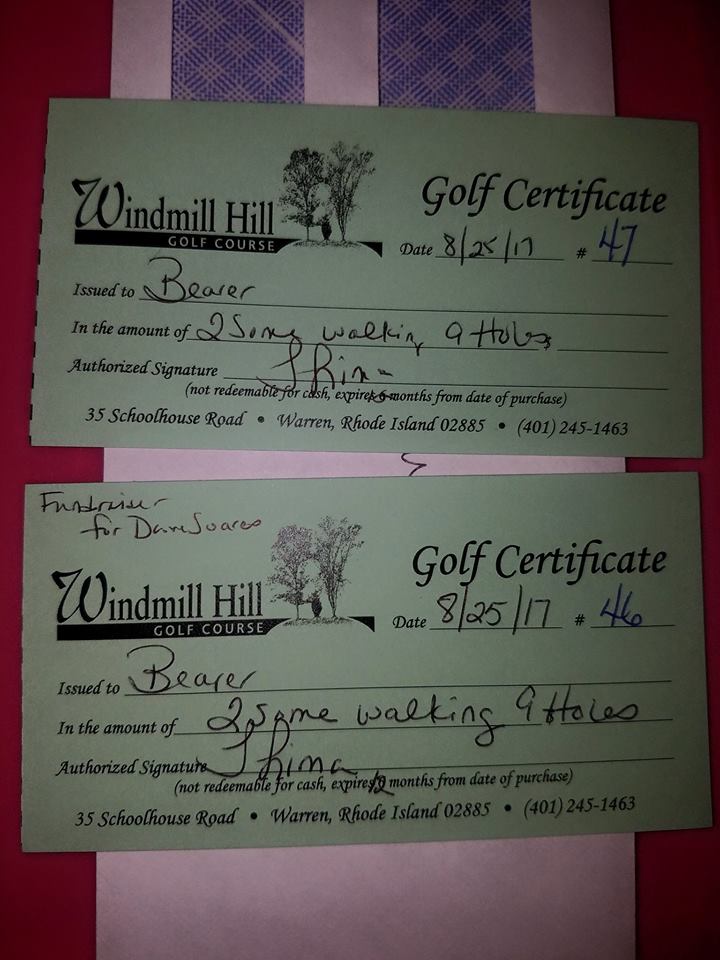 Windmill Hill
GOLF COURSE
Golf Certificate
Date 8/25/17 # 47
Issued to Bearer
In the amount of 2 Some walking 9 Holes
Authorized Signature
(not redeemable for cash, expires 6 months from date of purchase)
35 Schoolhouse Road • Warren, Rhode Island 02885 • (401) 245-1463
Fundraiser
for Dave Soares
Windmill Hill
GOLF COURSE
Golf Certificate
Date 8/25/17 # 46
Issued to Bearer
In the amount of 2 Some walking 9 Holes
Authorized Signature
(not redeemable for cash, expires 12 months from date of purchase)
35 Schoolhouse Road • Warren, Rhode Island 02885 • (401) 245-1463